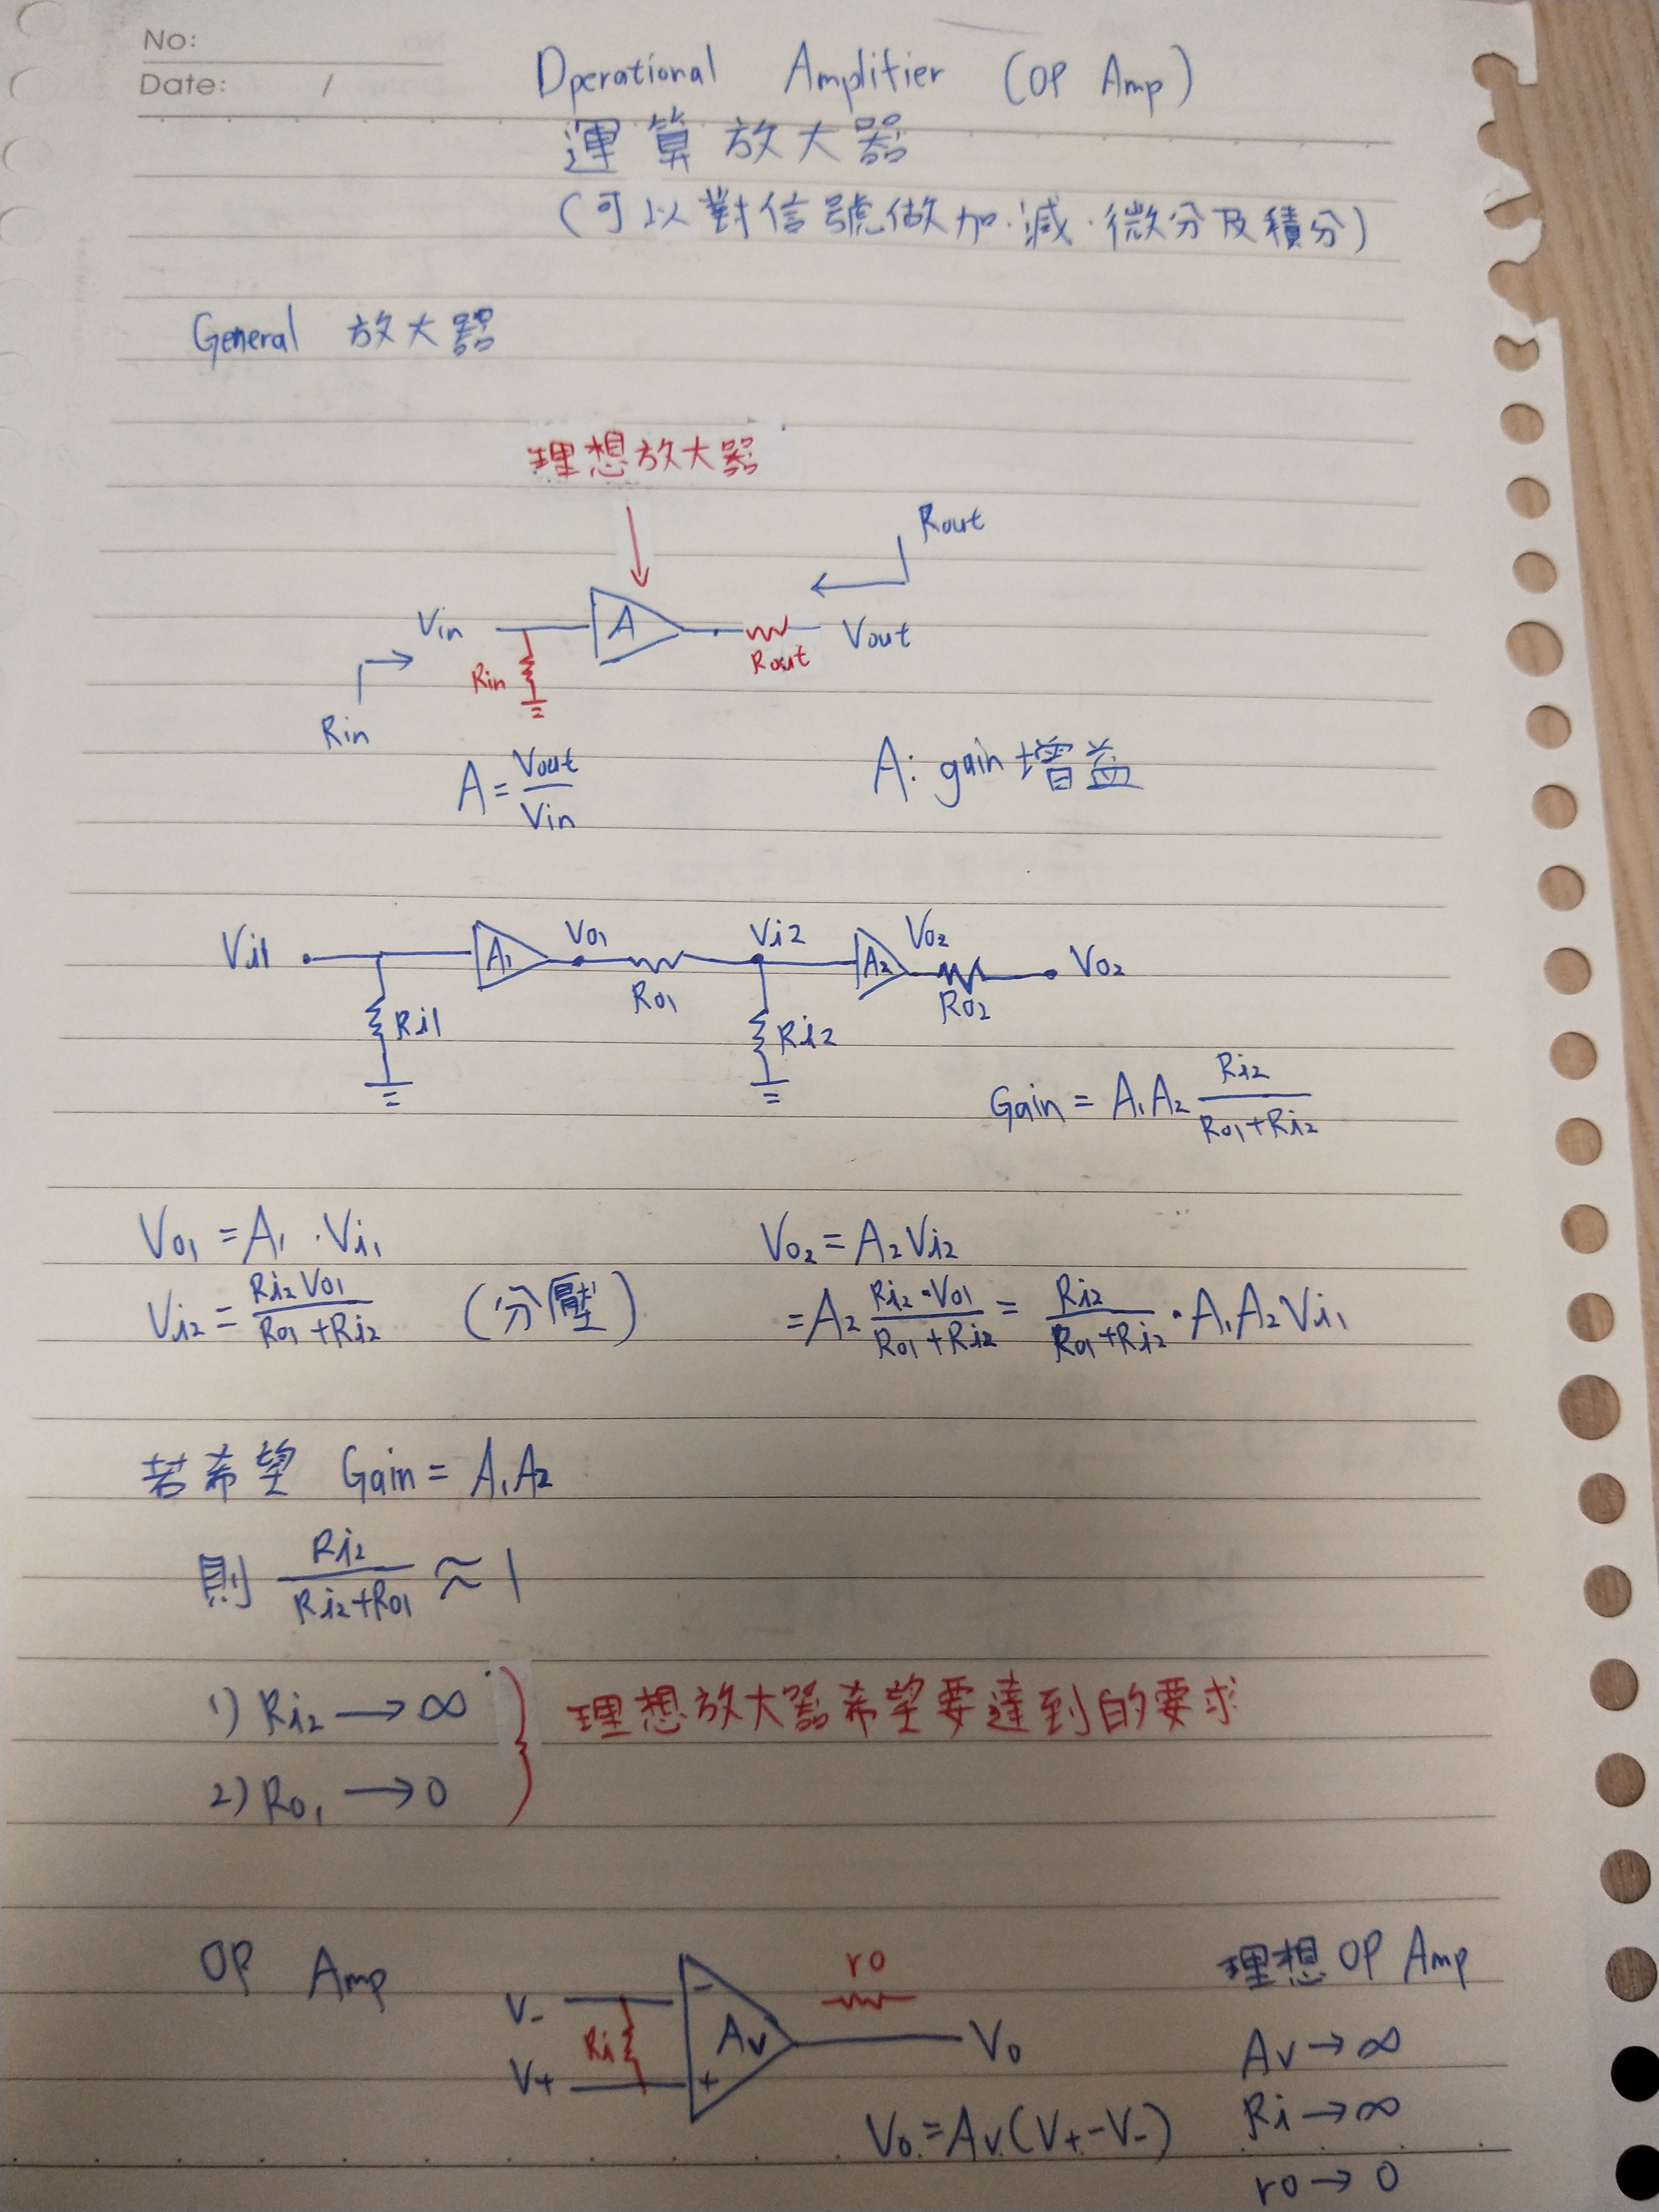 No:
Date: /
Operational Amplifier (OP Amp)
運算放大器
(可以對信號做加.減.微分及積分)
General 放大器
理想放大器
Rout
Vin A Vout
Rin Rout
Rin
A = Vout/Vin
A: gain 增益
Vi1 A1 Vo1 Vi2 A2 Vo2 Vo2
Ri1 Ro1 Ri2 Ro2
Gain = A1A2 Ri2/(Ro1+Ri2)
Vo1 = A1 · Vi1
Vi2 = Ri2Vo1/(Ro1+Ri2) (分壓)
Vo2 = A2Vi2
= A2 Ri2·Vo1/(Ro1+Ri2) = Ri2/(Ro1+Ri2) · A1A2Vi1
若希望 Gain = A1A2
則 Ri2/(Ri2+Ro1) ≈ 1
1) Ri2 → ∞
2) Ro1 → 0
理想放大器希望要達到的要求
OP Amp
V- - ro
Ri Av Vo
V+ +
Vo = Av(V+-V-)
理想 OP Amp
Av → ∞
Ri → ∞
ro → 0